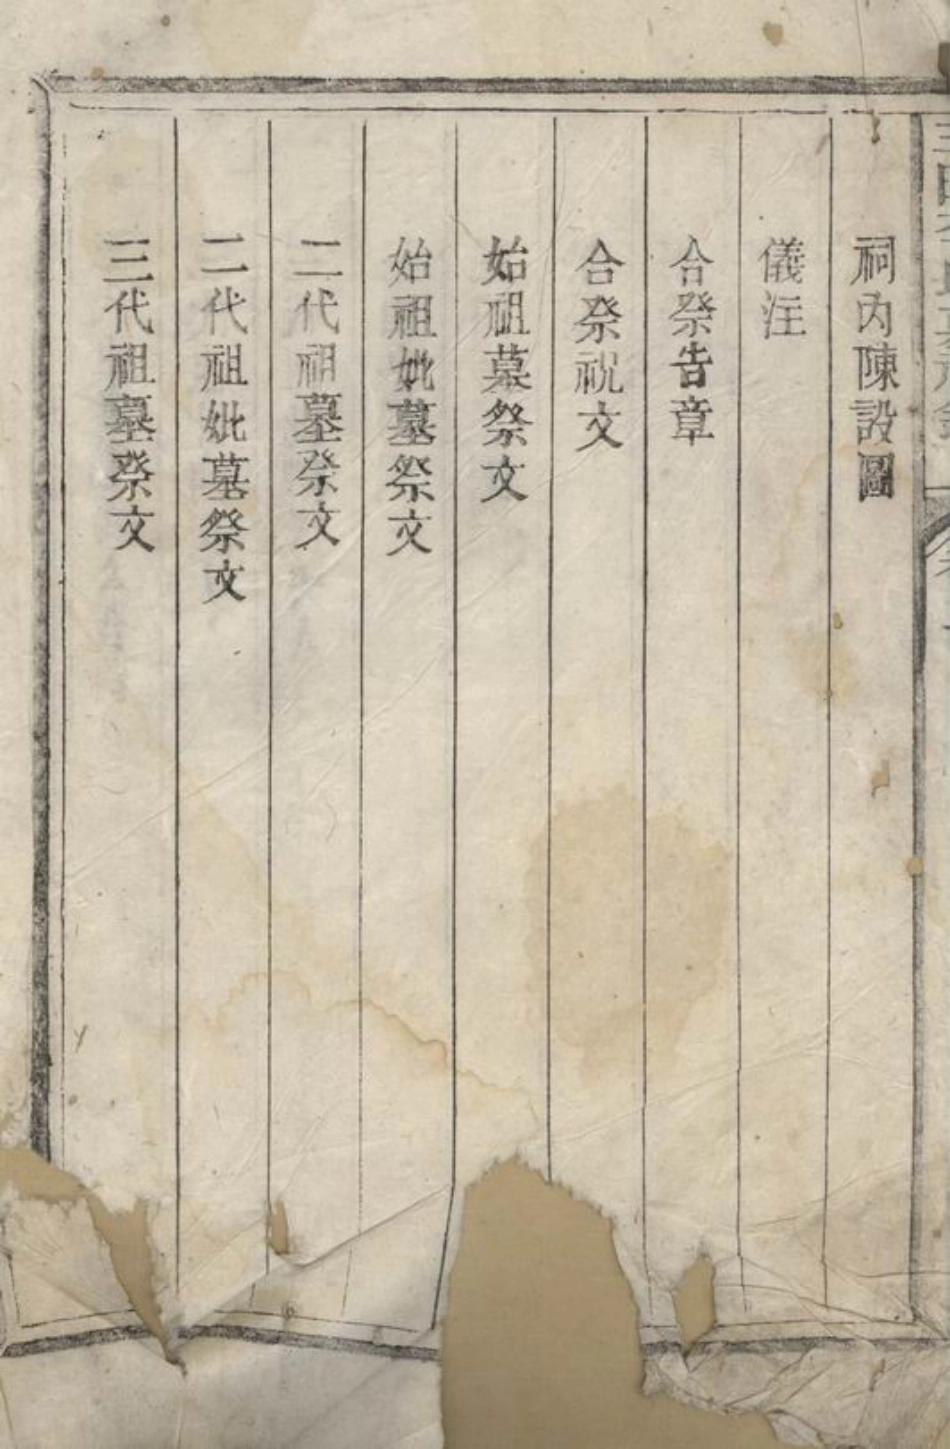 祠內陳設圖
儀注
合祭告章
合祭祝文
始祖墓祭文
始祖妣墓祭文
二代祖墓祭文
二代祖妣墓祭文
三代祖墓祭文